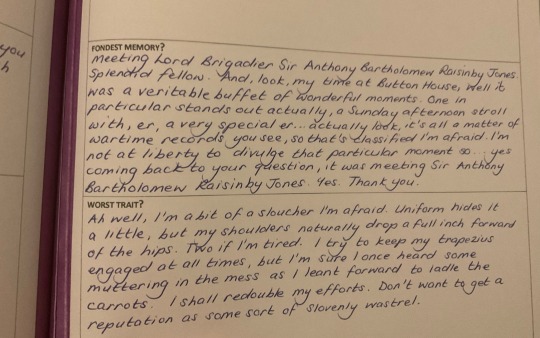 you
h
FONDEST MEMORY?
Meeting Lord Brigadier Sir Anthony Bartholomew Raisinby Jones.
Splendid fellow. And, look, my time at Button House, well it
was a veritable buffet of wonderful moments. One in
particular stands out actually, a Sunday afternoon stroll
with, er, a very special er... actually look, it's all a matter of
wartime records you see, so that's classified I'm afraid. I'm
not at liberty to divulge that particular moment so... yes
coming back to your question, it was meeting Sir Anthony
Bartholomew Raisinby Jones. Yes. Thank you.
WORST TRAIT?
Ah well, I'm a bit of a sloucher I'm afraid. Uniform hides it
a little, but my shoulders naturally drop a full inch forward
of the hips. Two if I'm tired. I try to keep my trapezius
engaged at all times, but I'm sure I once heard some
muttering in the mess as I leant forward to ladle the
carrots. I shall redouble my efforts. Don't want to get a
reputation as some sort of slovenly wastrel.